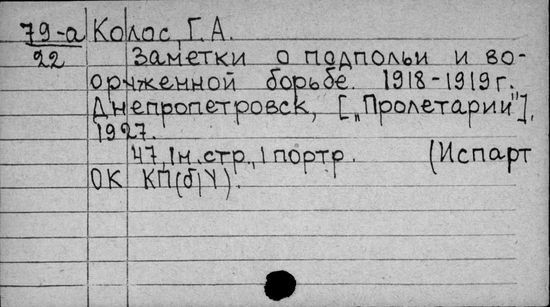 79-а Колос, Г. А.
22 Заметки о подпольи и во-
оруженной борьбе. 1918-1919 г.
Днепропетровск, ["Пролетарий"],
1927.
47, 1 н. стр., 1 портр. (Испарт
ОК КП(б)У).